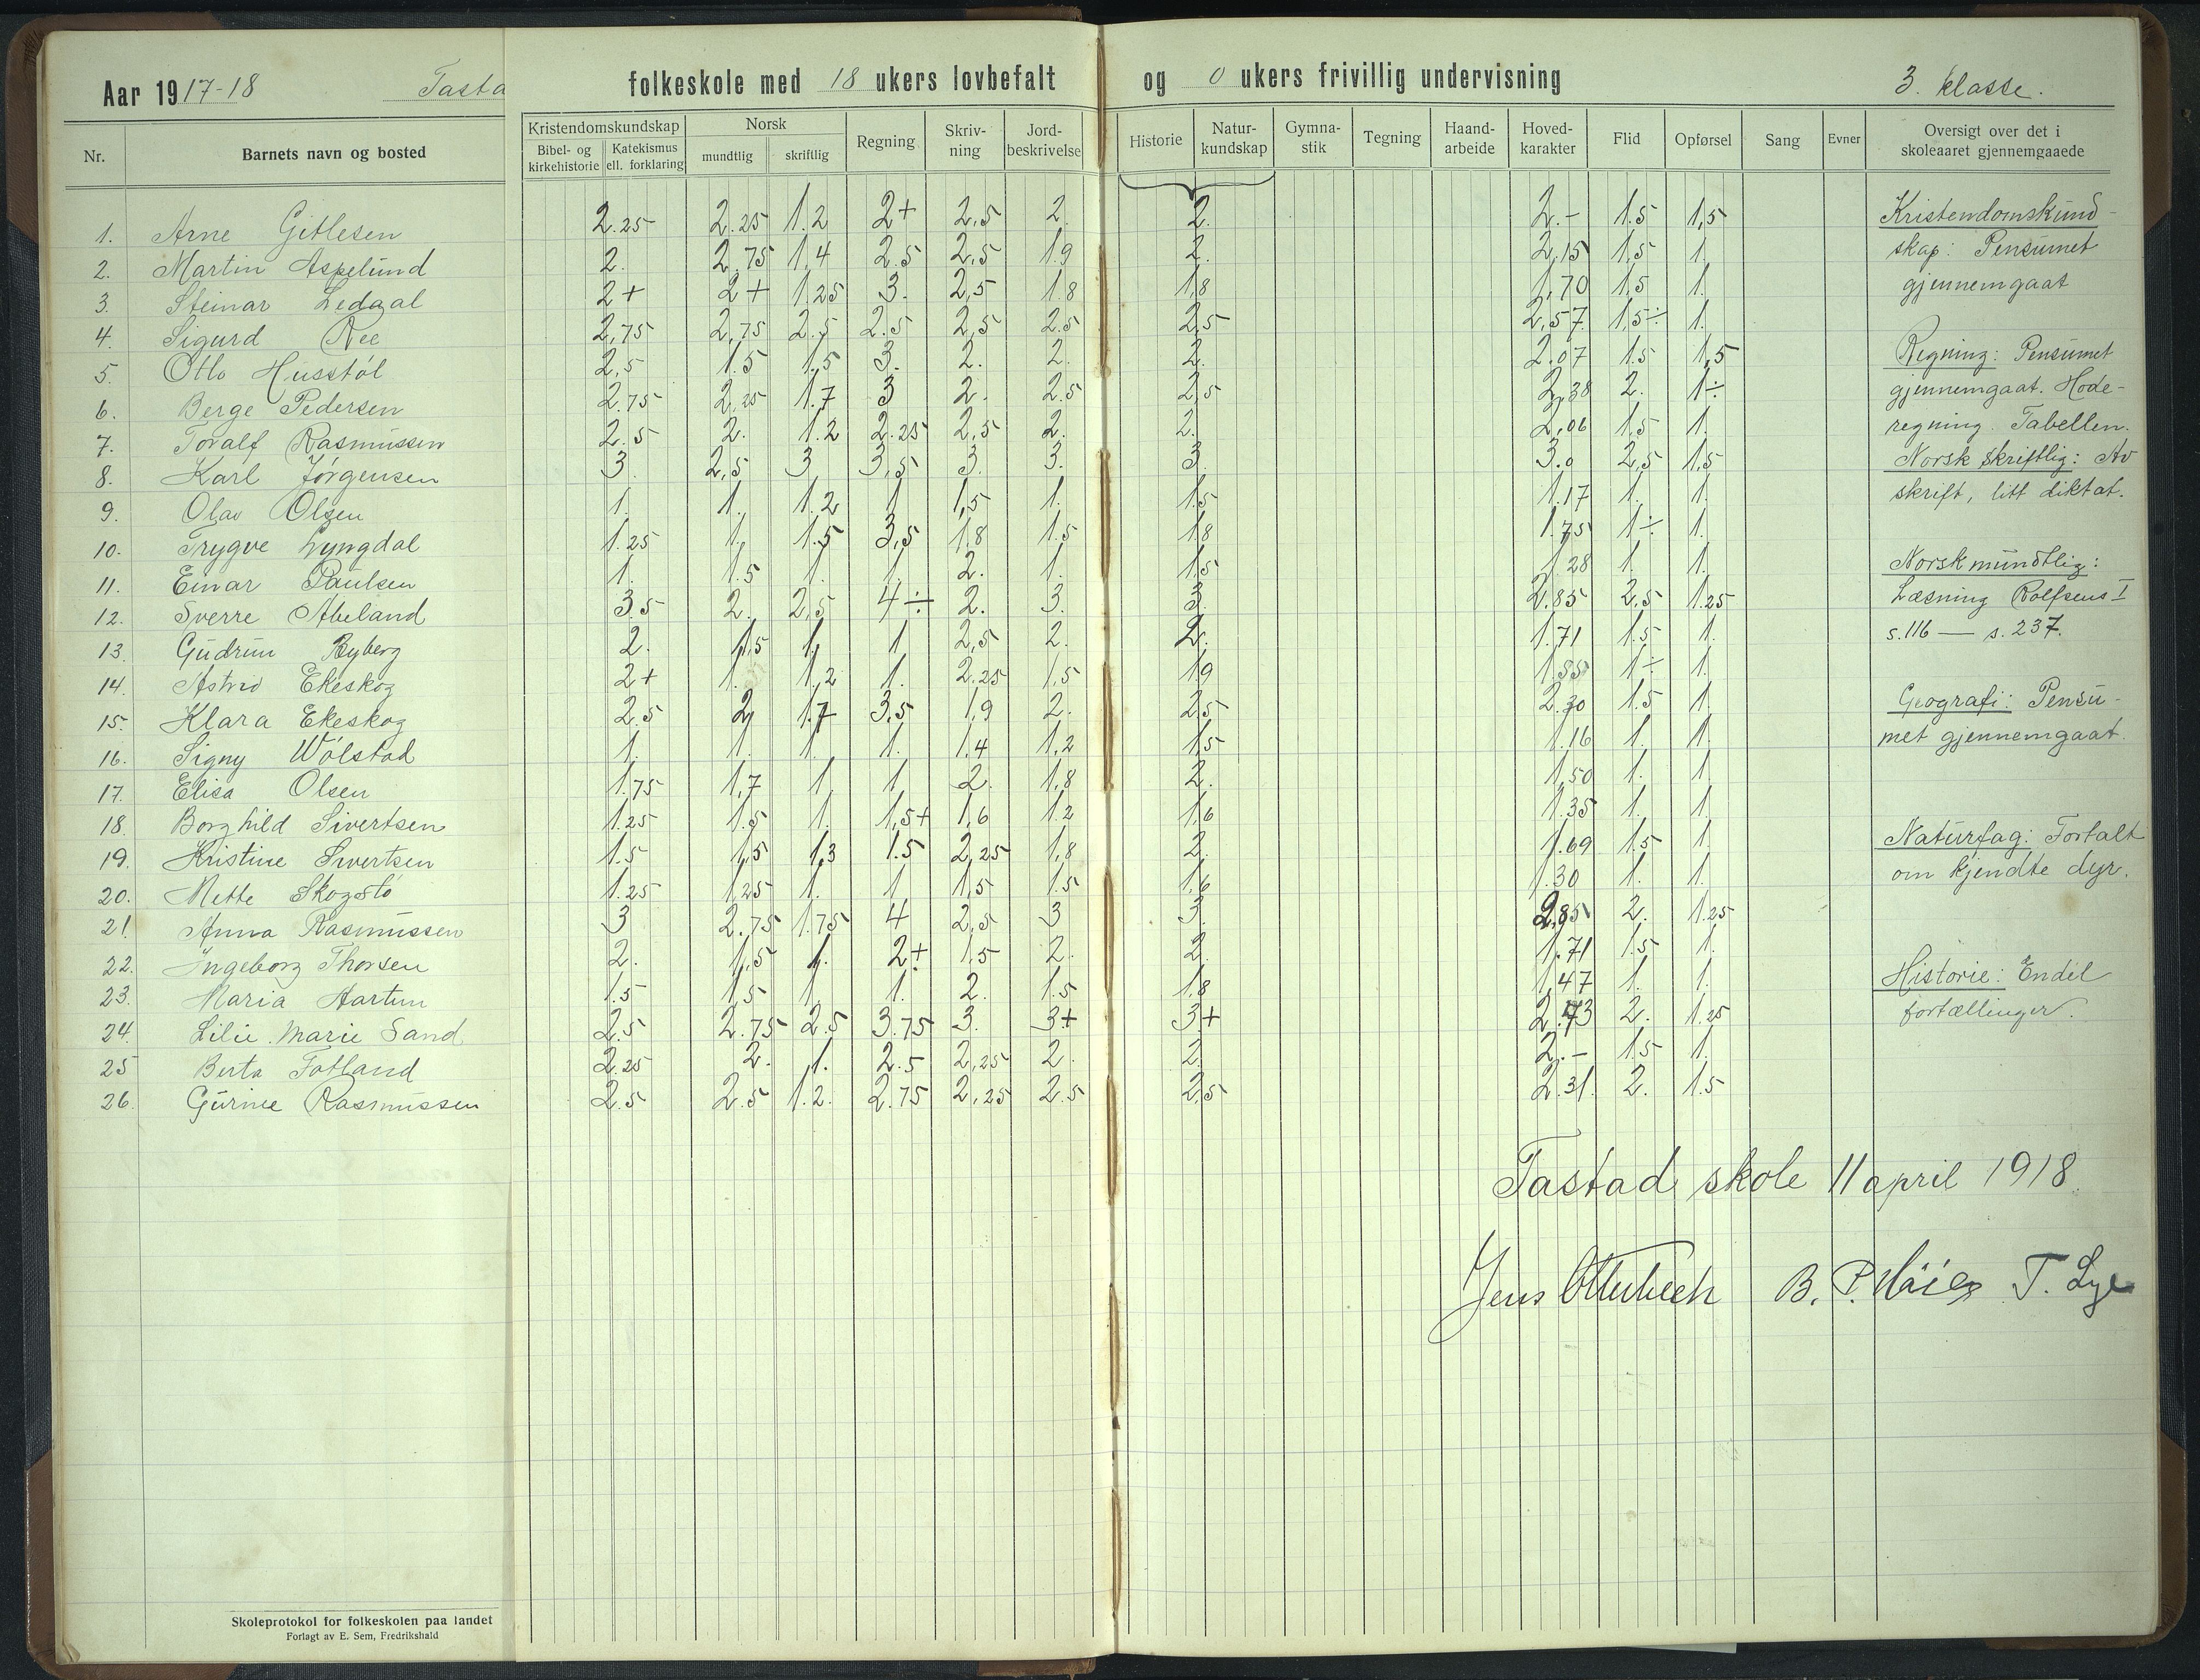 Aar 1917-18 Tasta folkeskole med 18 ukers lovbefalt og 0 ukers frivillig undervisning 3. klasse.
Nr. Barnets navn og bosted Kristendomskundskap Bibel- og kirkehistorie Katekismus ell. forklaring Norsk mundtlig skriftlig Regning Skrivning Jordbeskrivelse Historie Naturkundskap Gymnastik Tegning Haandarbeide Hovedkarakter Flid Opførsel Sang Evner Oversigt over det i skoleaaret gjennemgaaede
1. Arne Gitlesen 2.25 2.25 1.2 2+ 2,5 2. 2. 2.- 1.5 1,5
2. Martin Aspelund 2. 2.75 1,4 2.5 2,5 1.9 2. 2,15 1,5 1.
3. Steinar Ledaal 2+ 2+ 1.25 3. 2,5 1.8 1,8 1,70 1.5 1.
4. Sigurd Ree 2,75 2,75 2.5 2.5 2,5 2.5 2,5 2,57 1,5÷ 1.
5. Otto Husstøl 2,5 1.5 1,5 3. 2. 2. 2. 2.07 1.5 1,5
6. Berge Pedersen 2.75 2,25 1.7 3 2. 2.5 2,5 2,38 2. 1÷
7. Toralf Rasmussen 2.5 2. 1.2 2.25 2,5 2. 2. 2,06 1.5 1.
8. Karl Jørgensen 3 2,5 3 3,5 3. 3. 3. 3.0 2,5 1,5
9. Olav Olsen 1. 1. 1.2 1 1,5 1. 1.5 1.17 1. 1.
10. Trygve Lyngdal 1.25 1. 1.5 3,5 1.8 1.5 1.8 1.75 1÷ 1.
11. Einar Paulsen 1. 1.5 1. 1. 2. 1. 1.5 1.28 1. 1.
12. Sverre Abeland 3.5 2. 2,5 4÷ 2. 3. 3. 2.85 2,5 1.25
13. Gudrun Ryberg 2. 1,5 1. 1 2,5 2. 2. 1.71 1.5 1.
14. Astrid Ekeskog 2+ 1. 1,2 1. 2.25 1,5 1.9 1.55 1÷ 1.
15. Klara Ekeskog 2.5 2 1.7 3,5 1,9 2. 2,5 2.30 1.5 1.
16. Signy Wølstad 1. 1. 1. 1. 1,4 1,2 1,5 1.16 1. 1.
17. Elisa Olsen 1.75 1,7 1 1 2. 1,8 2. 1,50 1. 1.
18. Borghild Sivertsen 1.25 1.5 1. 1,5+ 1,6 1.2 1,6 1.35 1. 1.
19. Kristine Sivertsen 1.5 1,5 1,3 1.5 2,25 1,8 2. 1.69 1.5 1.
20. Mette Skogstø 1.25 1,25 1. 1 1,5 1.5 1,6 1.30 1. 1.
21. Anna Rasmussen 3 2.75 1.75 4 2,5 3 3. 2.85 2. 1.25
22. Ingeborg Thorsen 2. 1,5 1. 2+ 1.5 2. 2. 1.71 1.5 1.
23. Maria Aartun 1.5 1,5 1. 1. 2. 1.5 1.8 1,47 1. 1.
24. Lilie Marie Sand 2.5 2.75 2.5 3.75 3. 3+ 3+ 2.73 2. 1.25
25 Berta Fotland 2.25 2. 1. 2.5 2,25 2. 2. 2.- 1.5 1.
26. Gurine Rasmussen 2.5 2.5 1.2. 2.75 2,25 2.5 2,5 2.31. 2. 1.5
Kristendomskund-
skap: Pensumet
gjennemgaat
Regning: Pensumet
gjennemgaat. Hode-
regning. Tabellen.
Norsk skriftlig: Av
skrift, litt diktat.
Norsk mundtlig:
Læsning Rolfsens I
s. 116 — s. 237.
Geografi: Pensu-
met gjennemgaat.
Naturfag: Fortalt
om kjendte dyr.
Historie: Endel
fortællinger.
Tastad skole 11 april 1918.
Jens Otterbech B. P. Høie T. Lye
Skoleprotokol for folkeskolen paa landet
Forlagt av E. Sem, Fredrikshald